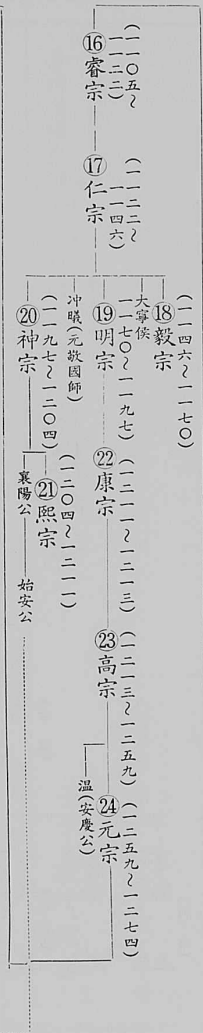 ⑯睿宗
(一一〇五～一一二二)
⑰仁宗
(一一二二～一一四六)
⑱毅宗
(一一四六～一一七〇)
大寧侯
⑲明宗
(一一七〇～一一九七)
冲曦(元敬國師)
⑳神宗
(一一九七～一二〇四)
㉑熙宗
(一二〇四～一二一一)
襄陽公
始安公
㉒康宗
(一二一一～一二一三)
㉓高宗
(一二一三～一二五九)
㉔元宗
(一二五九～一二七四)
温(安慶公)